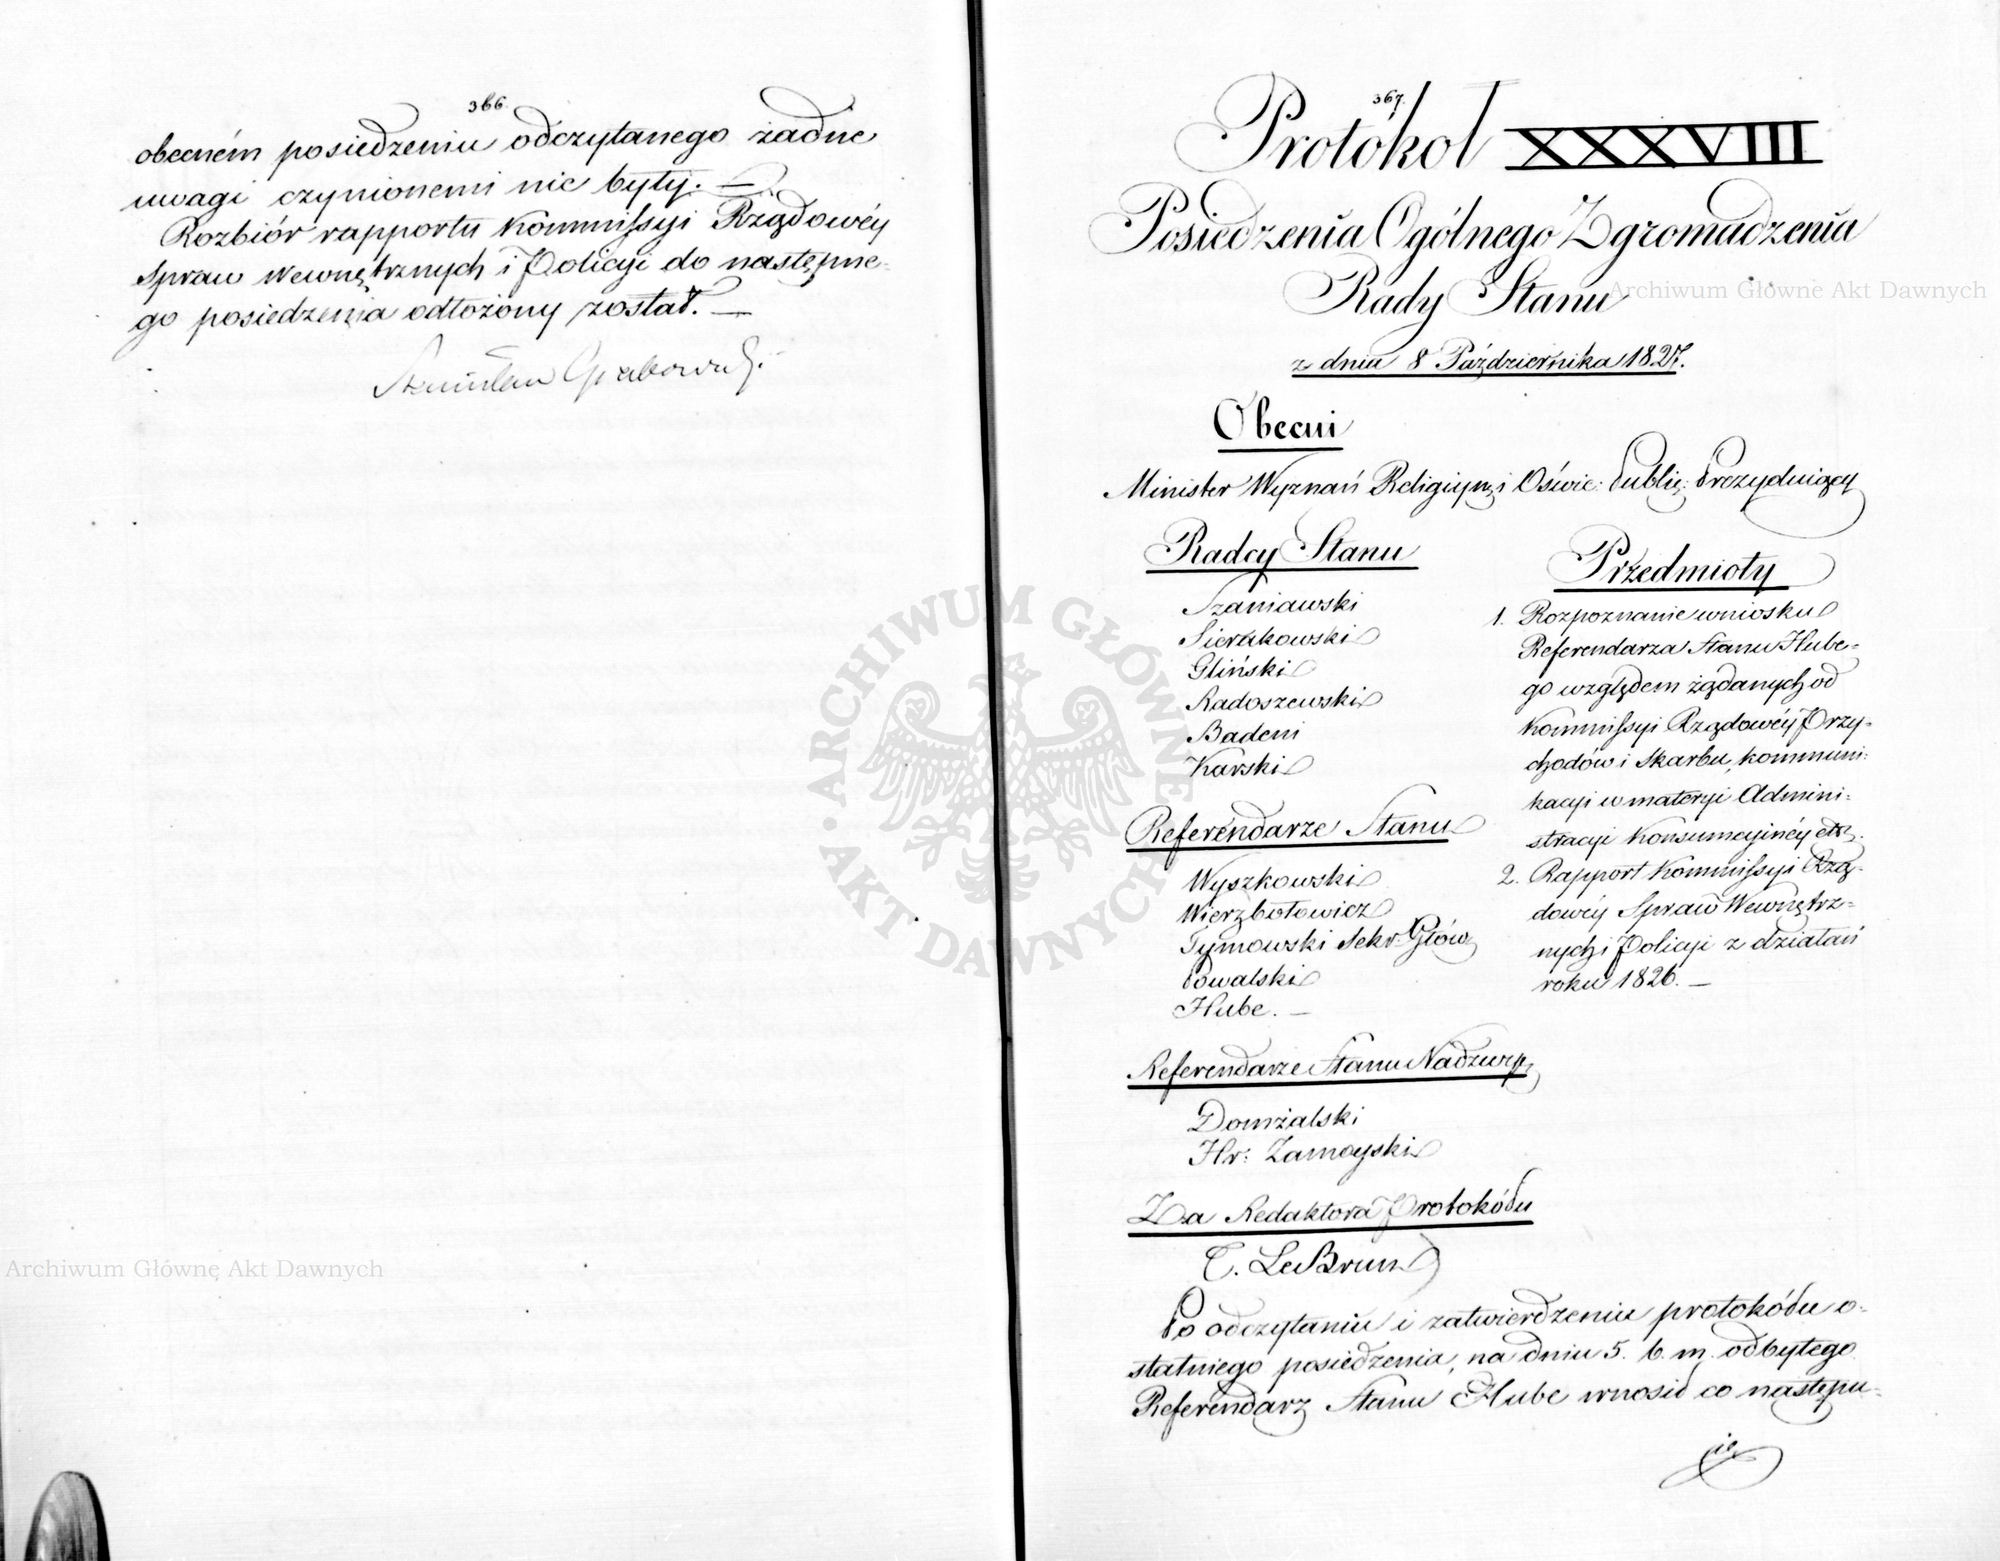 366.
obecném posiedzeniu odczytanego żadne
uwagi czynionemi nie były. —
Rozbiór rapportu Kommissyi Rządowéy
Spraw Wewnętrznych i Policyi do następne-
go posiedzenia odłożony został. —
Stanisław Grabowski.
367.
Protokół XXXVIII
Posiedzenia Ogólnego Zgromadzenia
Rady Stanu
z dnia 8 Października 1827.
Obecni
Minister Wyznań Religiyn: i Oświe: Public: Prezyduiący
Radcy Stanu
Szaniawski
Sierakowski
Gliński
Radoszewski
Badeni
Karski
Referendarze Stanu
Wyszkowski
Wierzbołowicz
Tymowski Sekr: Głów:
Kowalski
Hube. —
Referendarze Stanu Nadzwy:
Domżalski
Hr: Zamoyski
Za Redaktora Protokółu
C. LeBrun
Przedmioty
1. Rozpoznanie wniosku
Referendarza Stanu Hube-
go względem żądanych od
Kommissyi Rządowéy Przy-
chodów i Skarbu, kommuni-
kacyi w materyi Admini-
stracyi Konsumcyinéy etc.
2. Rapport Kommissyi Rzą-
dowéy Spraw Wewnętrz-
nych i Policyi z działań
roku 1826. —
Po odczytaniu i zatwierdzeniu protokółu o-
statniego posiedzenia, na dniu 5. b. m. odbytego
Referendarz Stanu Hube wnosił co następu-
ie
Archiwum Główne Akt Dawnych
Archiwum Główne Akt Dawnych
ARCHIWUM GŁÓWNE · AKT DAWNYCH ·